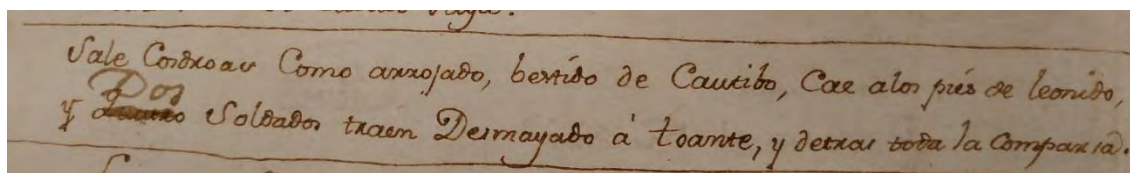 Sale Cosdroas Como arrojado, bestido de Cautibo, Cae alos pies de leonido,
y Dos Soldados traen Desmayado à toante, y detras toda la Comparsa.